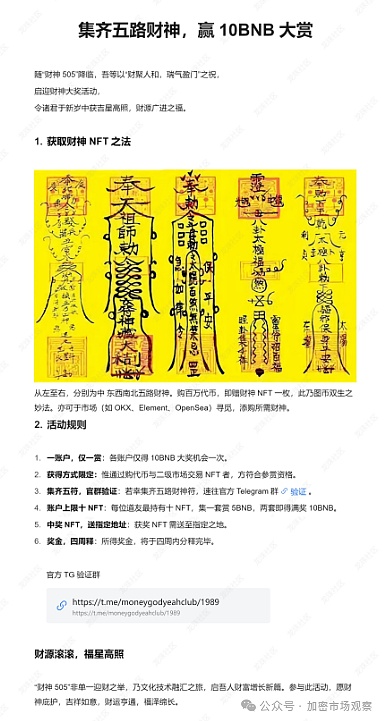 集齐五路财神，赢 10BNB 大赏
随“财神 505”降临，吾等以“财聚人和，瑞气盈门”之祝，
启迎财神大奖活动，
令诸君于新岁中获吉星高照，财源广进之福。
1. 获取财神 NFT 之法
奉 天 祖師勅令
保平安
从左至右，分别为中 东西南北五路财神。购百万代币，即赠财神 NFT 一枚，此乃图币双生之
妙法。亦可于市场（如 OKX、Element、OpenSea）寻觅，添购所需财神。
2. 活动规则
1. 一账户，仅一赏：各账户仅得 10BNB 大奖机会一次。
2. 获得方式限定：惟通过购代币与二级市场交易 NFT 者，方符合参赏资格。
3. 集齐五符，官群验证：若幸集齐五路财神符，速往官方 Telegram 群 验证 。
4. 账户上限十 NFT：每位道友最持有十 NFT，集一套赏 5BNB，两套即得满奖 10BNB。
5. 中奖 NFT，送指定地址：获奖 NFT 需送至指定之地。
6. 奖金，四周释：所得奖金，将于四周内分释完毕。
官方 TG 验证群
https://t.me/moneygodyeahclub/1989
https://t.me/moneygodyeahclub/1989
财源滚滚，福星高照
“财神 505”非单一迎财之举，乃文化技术融汇之旅，启吾人财富增长新篇。参与此活动，愿财
神庇护，吉祥如意，财运亨通，福泽绵长。
公众号 · 加密市场观察